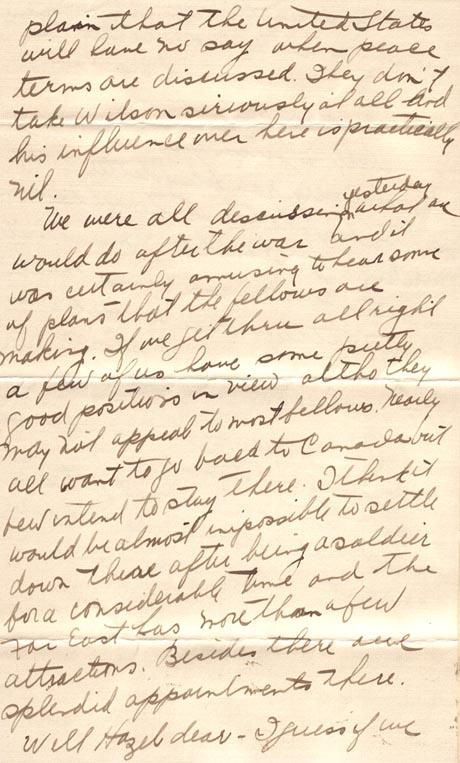 plain that the United States
will have no say when peace
terms are discussed. They don't
take Wilson seriously at all and
his influence over here is practically
nil.
We were all discussing yesterday what we
would do after the war and it
was certainly amusing to hear some
of plans that the fellows are
making. If we get thru all right
a few of us have some pretty
good positions in view altho they
may not appeal to most fellows. Nearly
all want to go back to Canada but
few intend to stay there. I think it
would be almost impossible to settle
down there after being a soldier
for a considerable time and the
Far East has more than a few
attractions. Besides there are
splendid appointments there.
Well Hazel dear - I guess if we